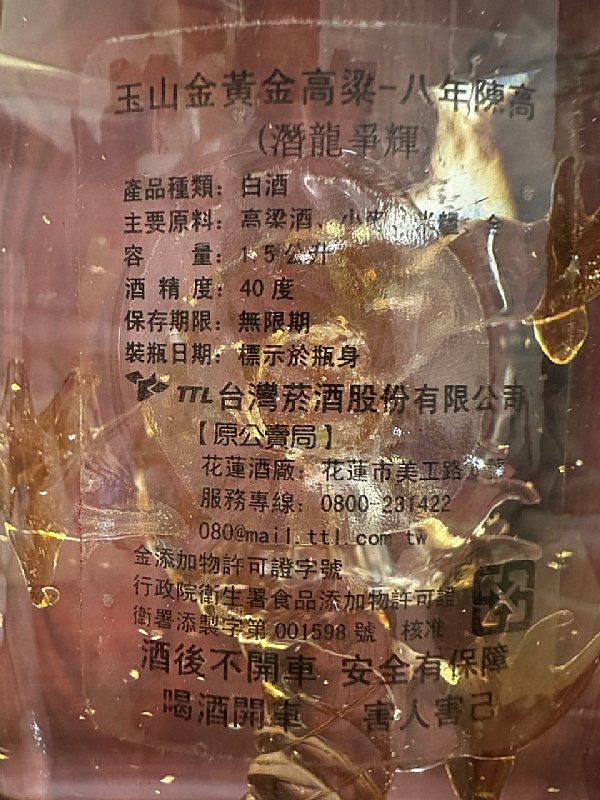 玉山金黃金高粱-八年陳高
(潛龍爭輝)
產品種類：白酒
主要原料：高粱酒、小 金
容 量：1.5公升
酒 精 度：40度
保存期限：無限期
裝瓶日期：標示於瓶身
TTL台灣菸酒股份有限公司
【原公賣局】
花蓮酒廠：花蓮市美工路
服務專線：0800-231422
080@mail.ttl.com.tw
金添加物許可證字號
行政院衛生署食品添加物許可證
衛署添製字第001598號 核准
酒後不開車 安全有保障
喝酒開車 害人害己